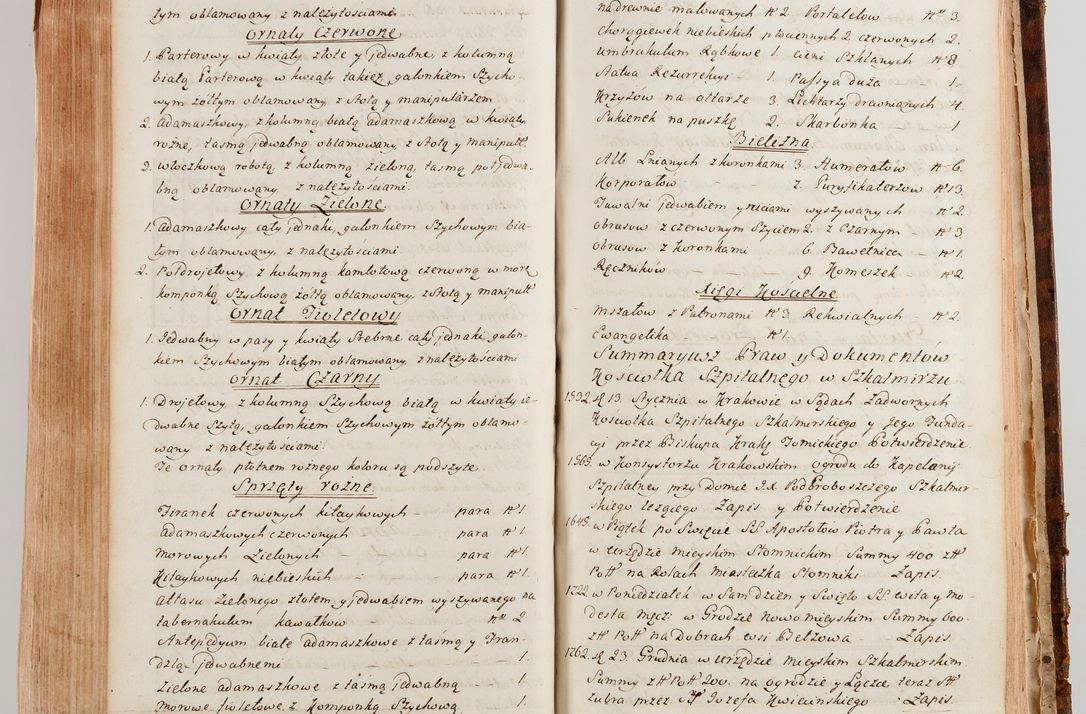 tym oblamowany z należytościami.
Ornaty Czerwone
1. Parterowy w kwiaty złote y jedwabne, z kolumną
białą Parterową w kwiaty takież galonkiem Szycho-
wym żółtym oblamowany z Stołą y manipularzem
2. Adamaszkowy, z kolumną białą adamaszkową w kwiaty
rożne, taśmą jedwabną oblamowany z Stołą y manipulł.
3. Włoczkową robotą, z kolumną zieloną, taśmą półjedwa-
bną oblamowany, z należytościami.
Ornaty Zielone.
1. Adamaszkowy cały jednaki, galonkiem Szychowym bia-
łym oblamowany z należytościami
2. Półdrojetowy, z kolumną kamlotową czerwoną w morę
komponką Szychową żółtą oblamowany, z Stołą y manipulł
Ornat Fioletowy
1. Jedwabny w pasy y kwiaty Srebrne cały jednaki, galon-
kiem Szychowym białym oblamowany z należytościami
Ornat Czarny
1. Drojetowy, z kolumną Szychową białą w kwiaty je-
dwabne Szytą, galonkiem Szychowym żółtym oblamo-
wany z należytościami.
Te ornaty płotnem rożnego koloru są podszyte.
Sprzęty rożne.
Firanek czerwonych kitaykowych - para Nº 1
Adamaszkowych czerwonych para Nº 1.
Morowych Zielonych para Nº 1.
Kitaykowych niebieskich - para Nº 1.
Atłasu Zielonego złotem y jedwabiem wyszywanego na
tabernakulum kawałków - Nº 2
Antepedyum białe adamaszkowe z taśmą y Fran-
dzlą jedwabnemi - 1.
Zielone adamaszkowe z taśmą jedwabną 1.
Morowe fioletowe z Komponką Szychową 1.
na drewnie malowanych Nº 2 Portatelow Nº 3.
Chorągiewek niebieskich płociennych 2. czerwonych 2.
Umbrakulum Rąbkowe 1. Cieni Szklanych Nº 8
Statua Rezurrekcyi - 1. Passya duża - 1.
Krzyżów na ołtarze 3. Lichtarzy drewnianych 4.
Sukienek na puszkę 2. Skarbonka 1
Bielizna
Alb Lnianych z koronkami 3. Humerałów Nº 6.
Korporałów - 7. Puryfikaterzow Nº 13
Tuwalni jedwabiem y niciami wyszywanych Nº 2.
Obrusow z czerwonym Szyciem 2. z Czarnym Nº 3
Obrusow z koronkami 6. Bawełnica - Nº 1.
Ręczników - 9. Komeszek Nº 2.
Xięgi Kościelne
Mszałow z Patronami Nº 3. Rekwialnych - Nº 2
Ewangelika Nº 1.
Summaryusz Praw y Dokumentów
Kosciołka Szpitalnego w Szkalmirzu
1532. d. 13. Stycznia w Krakowie w Sądach Zadwornych
Kościołka Szpitalnego Szkalmirskiego y jego Funda-
cyi przez Biskupa Krakł Tomickiego Potwierdzenie.
1565. w Konsystorzu Krakowskim ogrodu do Kapelanij
Szpitalney przy Domie JX. Podproboszczego Szkalmir-
skiego leżącego Zapis y Potwierdzenie
1648. w Piątek po Swięcie SS. Apostołów Piotra y Pawła
w Urzędzie mieyskim Słomnickim Summy 400 złł
Polł na Rolach miasteczka Słomniki Zapis.
1722. w Poniedziałek w Sam dzień y Swięto SS. Wita y Mo-
desta Męcz: w Grodzie Nowomieyskim Summy 600.
złł Polł na Dobrach Wsi Bełzowa - Zapis.
1762. d. 23. Grudnia w Urzędzie mieyskim Szkalmirskim
Summy złł Polł 200. na ogrodzie y Łącce teraz
Zubra przez Józefa Kwiecińskiego Zapis.